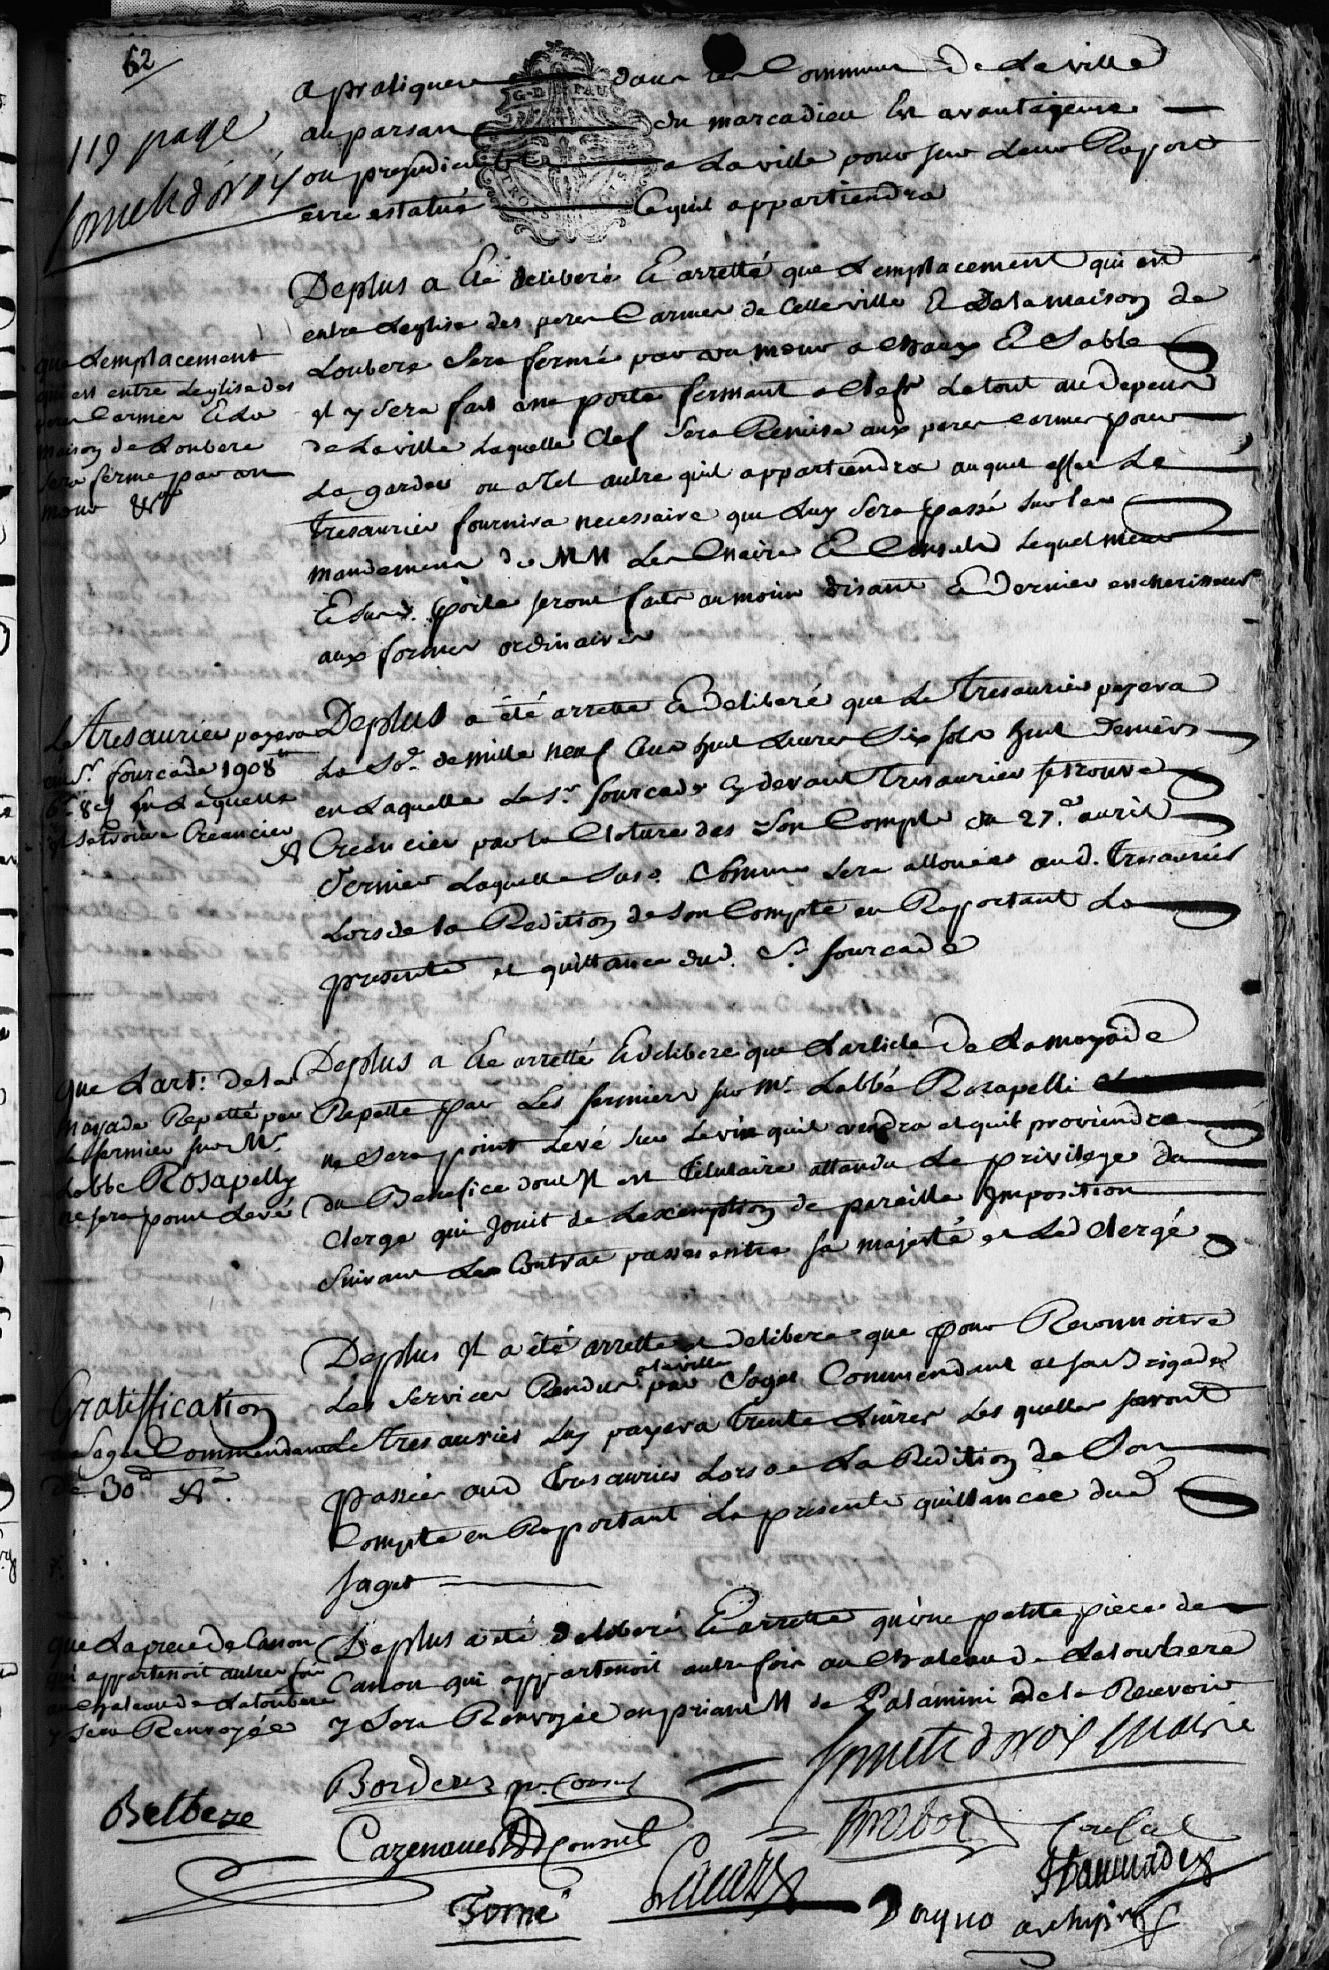 62
119 page
a pratiquer dans les Commune de la ville
au parsan du marcadieu est avantageuse
ou prejudiciable a La ville pour sur leur Raport
etre estatué ce quil appartiendra
G.D. PAU
Deplus a Ete deliberé & arretté que Lemplacement qui est
entre Leglise des peres Carmes de Cette ville & de la maison de
Loubere Sera fermé par un meur a Chaux & Sable
Il y Sera fait une porte fermant a Clef Le tout au Depens
de La ville Laquelle Clef Sera Remise aux peres Carmes pour
La garder ou a Tel autre quil appartiendra auquel effet Le
Tresaurier fournira necessaire que Luy Sera passé sur Les
mandemens de MM Les Maire & Consuls Lequel meur
& Sud. porte seront faits au moins disant & Dernier encherisseur
aux formes ordinaires
que Lemplacement
qui est entre Leglise des
peres Carmes & La
maison de Loubere
Sera fermé par un
meur &c
Deplus a été arretté & Deliberé que Le Tresaurier payera
La So.e de mille neuf Cens huit Livres Six sols huit Deniers
en Laquelle Le S.r fourcade Cy devant Tresaurier se trouve
Creancier par la Cloture des Son Compte du 27.e avril
Dernier Laquelle Susd. Somme Sera allouée aud. Tresaurier
Lors de la Redition de Son Compte en Raportant La
presente et quittance dud. S.r fourcade
Le Tresaurier payera
au S.r fourcade 1908
6 s 8 d en Laquelle
il se trouve Creancier
Deplus a Ete arretté & delibere que Larticle de La mayade
Repetté par Les fermiers sur Mr. Labbé Rozapelli
ne Sera point Levé Sur Le vin quil vendra et quil proviendra
du Benefice dont Il est Titulaire attendu Le privilege du
Clerge qui jouit de Lexemption de pareille Imposition
Suivant Les Contrac passés entre Sa majesté et Led Clergé
que Lart: de la
mayade Repetté par
Le fermier sur Mr.
Labbe Rosapelly
ne sera point Levé
Deplus Il a été arretté et delibere que pour Reconnoitre
Les Services Rendus a la ville par Saget Commendant et sa Brigade
Le Tresaurier Luy payera Trente Livres Les quelles seront
passées aud Tresaurier Lors de La Redition de Son
Compte en Raportant La presente quittancée dud
Saget
Gratiffication
de Saget Commendant
de 30
Deplus a été deliberé & arretté qu'une petite piece de
Canon qui appartenoit autre fois au Chateau de Latoubere
y Sera Renvoyée en priant M de Palamini de la Recevoir
que La piece de Canon
qui appartenoit autre fois
au Chateau de Latoubere
y Sera Renvoyée
maire
Borderes pr. Consul
Belbeze
Cazenaue Consul
Consul
Tomé